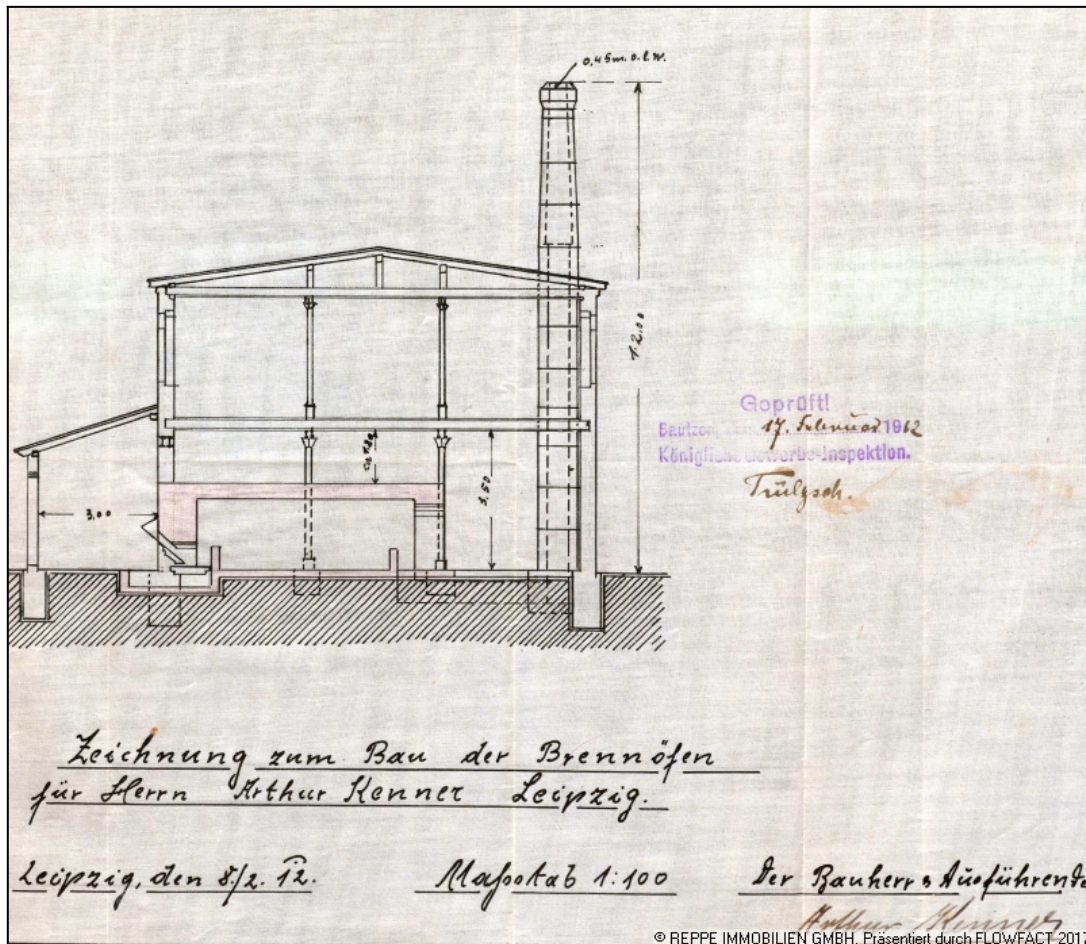 0,45m. o. l. W.
12.00
Geprüft!
Bautzen, 17. Februar 1912
Königliche Gewerbe-Inspektion.
3.50
3,00
Zeichnung zum Bau der Brennöfen
für Herrn Arthur Kenner Leipzig.
Leipzig, den 8/2. 12. Maßstab 1:100 Der Bauherr & Ausführende
Arthur Kenner
© REPPE IMMOBILIEN GMBH. Präsentiert durch FLOWFACT 2017